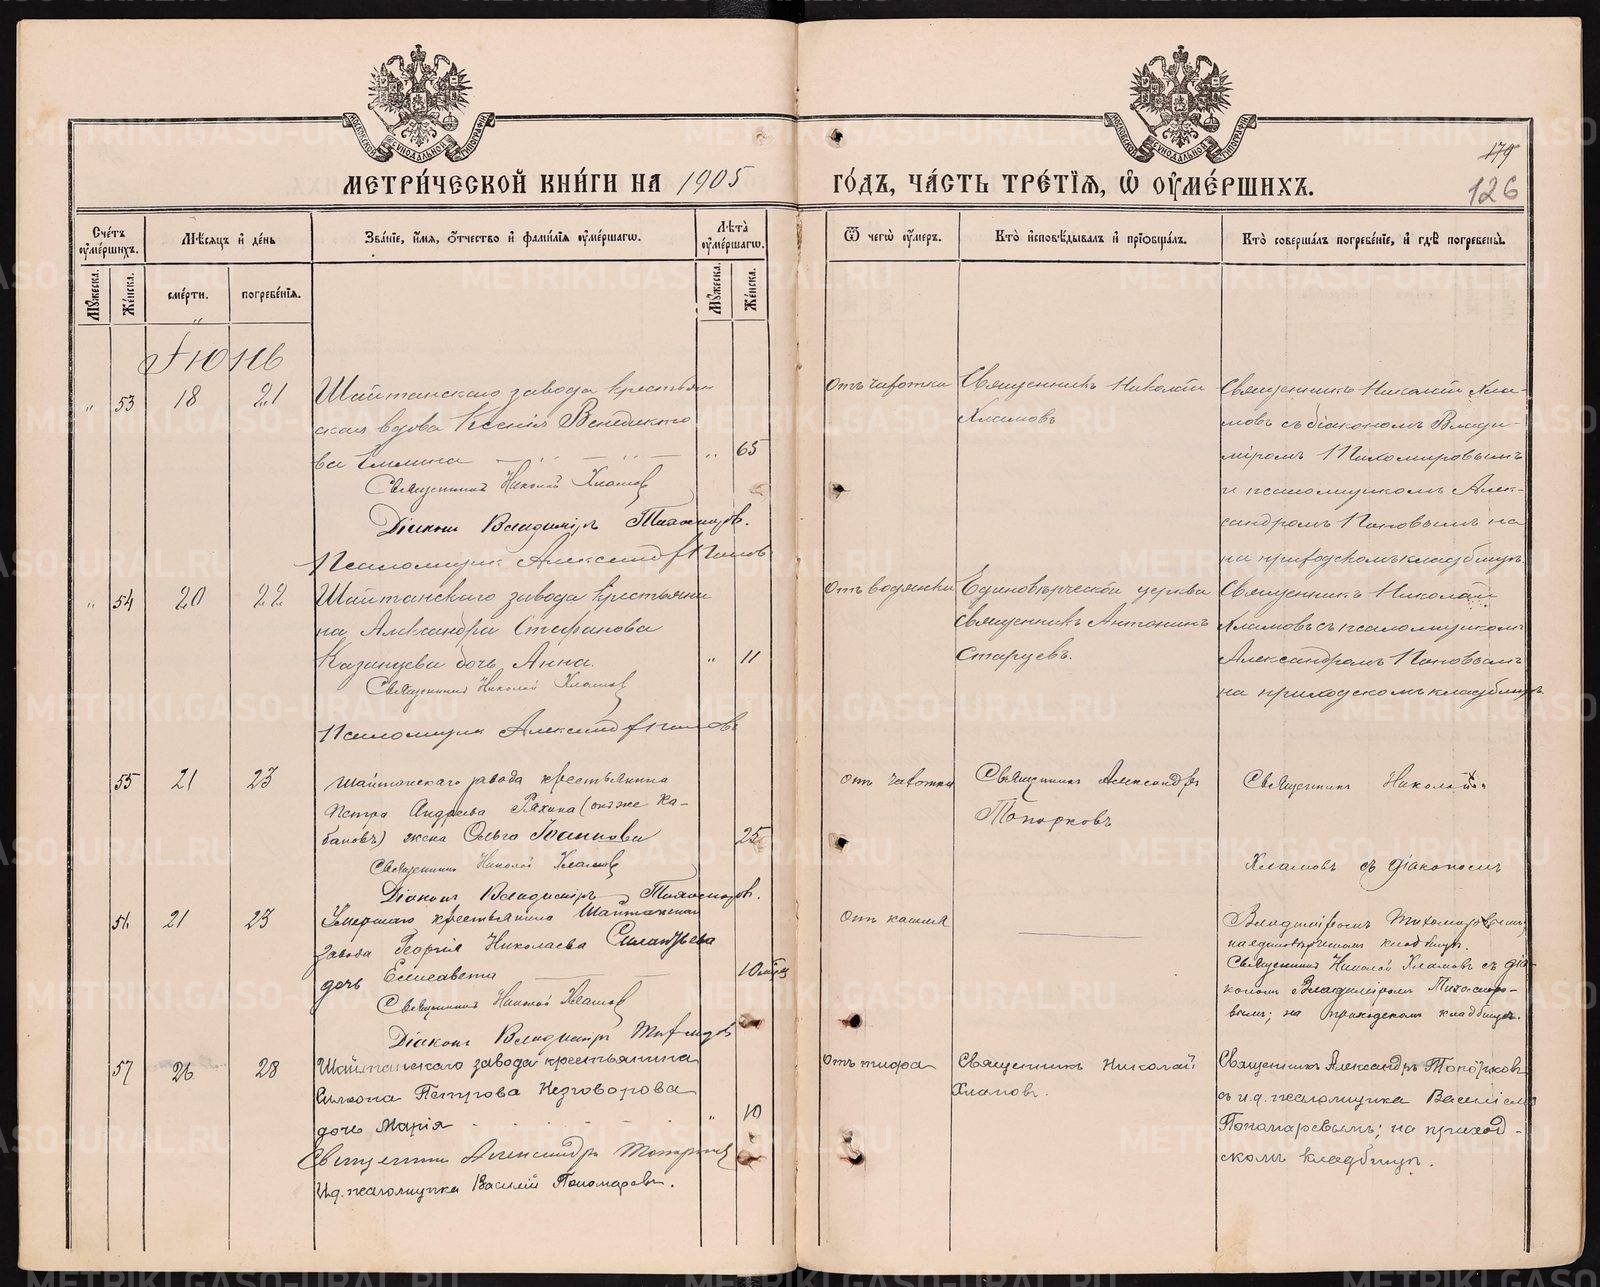 МЕТРИ́ЧЕСКОЙ КНИ́ГИ НА 1905 ГО́ДЪ, ЧА́СТЬ ТРЕ́ТІЯ, Ѡ ОУМЕ́РШИХЪ.
179
126
Сче́тъ оуме́ршихъ.
Мѣсяцъ и де́нь
Зва́ніе, и́мя, о́тчество и фами́лія оуме́ршагѡ.
Лѣта̀ оуме́ршагѡ.
Ѿ чегѡ̀ оу́меръ.
Кто̀ исповѣ́дывалъ и пріобща́лъ.
Кто̀ соверша́лъ погребе́ніе, и гдѣ̀ погребены̀.
Мꙋжеска.
Же́нска.
сме́рти.
погребе́нія.
Мꙋжеска.
Же́нска.
Іюнь
„ 53 18 21
Шайтанскаго завода крестьян
ская вдова Ксенія Венедикто
ва
„ 65
Священникъ Николай Хламов
Діаконъ Владиміръ Тихомиров.
Псаломщик Александр Попов
Отъ чахотки
Священникъ Николай
Хламовъ
Священникъ Николай Хла-
мовъ съ діакономъ Влади-
міромъ Тихомировымъ
и псаломщикомъ Алек-
сандромъ Поповымъ на
на приходскомъ кладбищѣ.
„ 54 20 22
Шайтанскаго завода крестьяни
на Александра Стефанова
Казанцева дочь Анна.
„ 11
Священникъ Николай Хламов
Псаломщик Александр Поповъ
Отъ водянки
Единовѣрческой церкви
священникъ Антонинъ
Старцевъ.
Священникъ Николай
Хламовъ съ псаломщикомъ
Александромъ Поповымъ
на приходскомъ кладбищѣ.
55 21 23
Шайтанскаго завода крестьянина
Петра Андреева Ряхина (онъ же Ка-
бановъ) жена Ольга Іоаннова
25
Священникъ Николай Хламов
Діаконъ Владиміръ Тихомиров.
отъ чахотки
Священникъ Александръ
Топорковъ
Священникъ Николай
Хламовъ съ діакономъ
Владиміромъ Тихомировымъ;
на единовѣрческомъ кладбищѣ.
56. 21 23
Умершаго крестьянина Шайтанскаго
завода Георгія Николаева Силантьева
дочь Елисавета
10 мѣсяц
Священникъ Николай Хламов
Діаконъ Владиміръ Тихомиров
отъ кашля
Священникъ Николай Хламовъ съ діа-
кономъ Владиміромъ Тихомиро-
вымъ; на приходскомъ кладбищѣ.
57 26 28
Шайтанскаго завода крестьянина
Петрова Незговорова
дочь Марія
„ 10
Священникъ Александръ Топорков
И.д. псаломщика Василій Пономаревъ.
Отъ тифа
Священникъ Николай
Хламовъ.
Священникъ Александръ Топорковъ
съ и.д. псаломщика Василіемъ
Пономаревымъ; на приход-
скомъ кладбищѣ.
METRIKI.GASO-URAL.RU